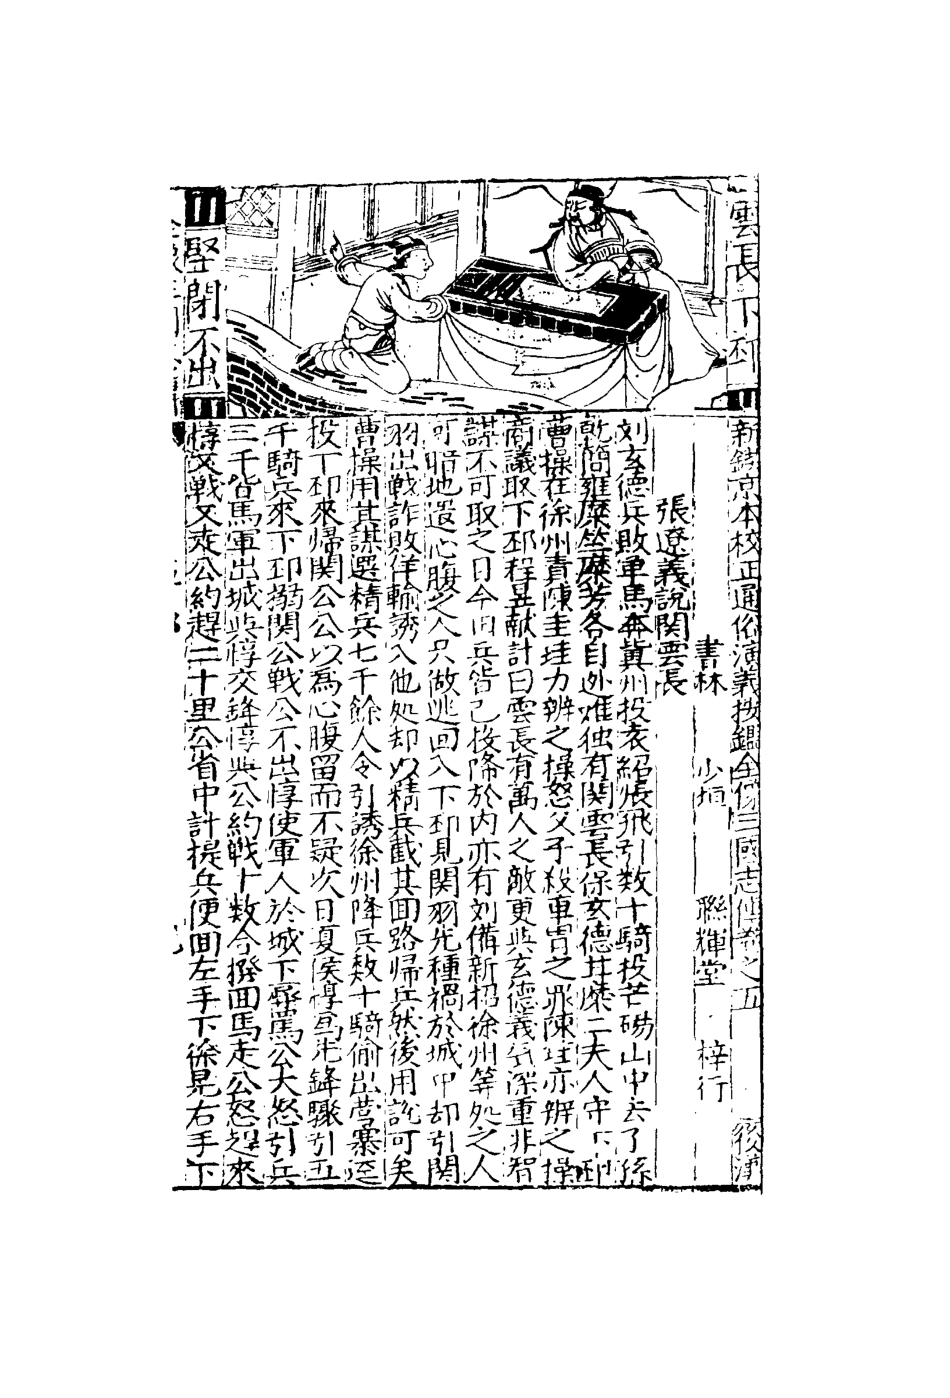 雲長下邳
堅閉不出
新鋟京本校正通俗演義按鑑全像三國志傳卷之五 後漢
書林 少垣 聯輝堂 梓行
張遼義說関雲長
刘玄德兵敗单馬奔冀州投袁紹張飛引数十騎投芒砀山中去了孫
乾簡雍糜竺糜芳各自逃难独有関雲長保玄德甘糜二夫人守下邳
曹操在徐州責陳圭珪力辨之操怒父子殺車冑之罪陳珪亦辨之操
商議取下邳程昱献計曰雲長有萬人之敵更兴玄德義气深重非智
謀不可取之日今旧兵皆已投降於内亦有刘備新招徐州等処之人
可暗地造心腹之人只做逃回入下邳見関羽先種禍於城中却引関
羽出戦詐敗佯輸誘入他処却以精兵截其回路歸兵然後用説可矣
曹操用其謀選精兵七千餘人令引誘徐州降兵数十騎偷出営寨迳
投下邳來帰関公公以爲心腹留而不疑次日夏侯惇爲先鋒驟引五
千騎兵來下邳搦関公戦公不出惇使軍人於城下辱罵公大怒引兵
三千皆馬軍出城兴惇交鋒惇兴公約戦十数合撥回馬走公怒趕來
惇又戦又走公約趕二十里公省中計提兵便回左手下徐晃右手下